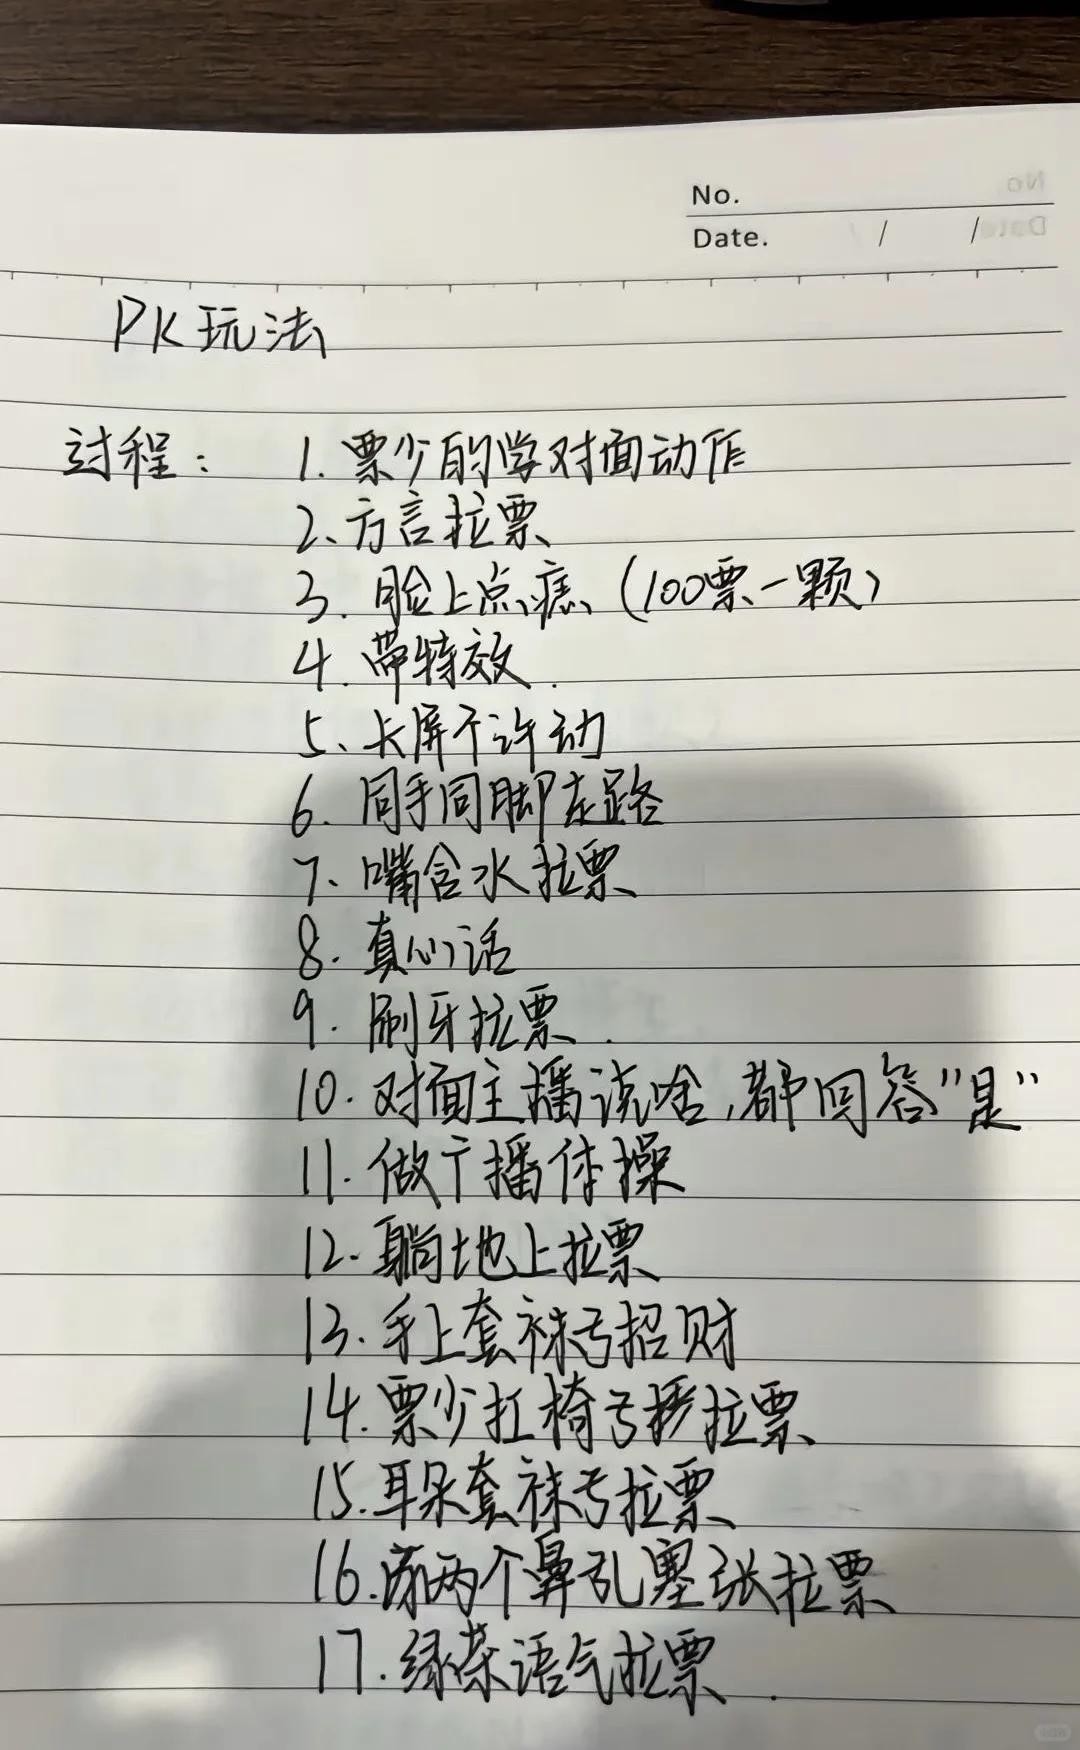 No.
Date. / /
PK玩法
过程: 1. 票少的学对面动作
2、方言拉票
3. 脸上点痣 (100票一颗)
4. 带特效.
5、卡屏不许动
6. 同手同脚走路
7、嘴含水拉票
8. 真心话
9. 刷牙拉票.
10. 对面主播说啥,都回答"是"
11. 做广播体操
12. 躺地上拉票
13. 手上套袜子招财
14. 票少扛椅子拉票
15. 耳朵套袜子拉票
16. 两个鼻孔塞张拉票
17. 绿茶语气拉票.